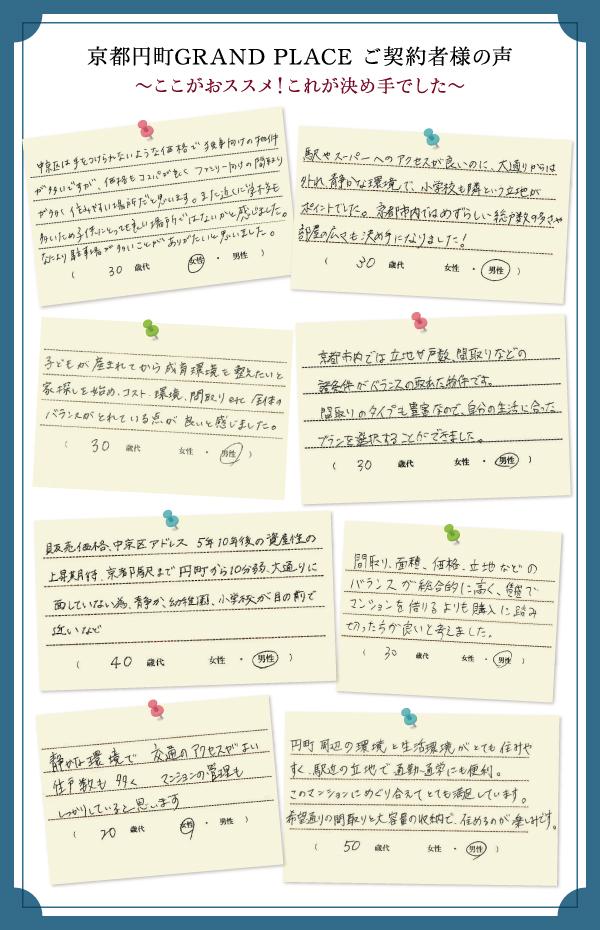 京都円町GRAND PLACE ご契約者様の声
～ここがおススメ！これが決め手でした～
中京区は手をつけられないような価格で単身向けの物件
が多いですが、価格もコスパが良く ファミリー向けの間取り
が多く 住みやすい場所だと思います。また近くに学校も
多いため子供にとっても良い場所ではないかと感じました。
なにより駐車場が多いことがありがたいと思いました。
（ 30 歳代 女性 ・ 男性 ）
駅やスーパーへのアクセスが良いのに、大通りからは
外れ静かな環境で、小学校も隣という立地が
ポイントでした。京都市内ではめずらしい総戸数の多さや
部屋の広さも決め手になりました！
（ 30 歳代 女性 ・ 男性 ）
子どもが産まれてから成育環境を整えたいと
家探しを始め、コスト・環境、間取りetc 全体の
バランスがとれている点が良いと感じました。
（ 30 歳代 女性 ・ 男性 ）
京都市内では立地や戸数、間取りなどの
諸条件がバランスの取れた物件です。
間取りのタイプも豊富なので、自分の生活に合った
プランを選択することができました。
（ 30 歳代 女性 ・ 男性 ）
販売価格、中京区アドレス 5年10年後の資産性の
上昇期待、京都駅まで円町から10分弱、大通りに
面していない為、静か、幼稚園、小学校が目の前で
近いなど
（ 40 歳代 女性 ・ 男性 ）
間取り、面積、価格、立地などの
バランスが総合的に高く、賃貸で
マンションを借りるよりも購入に踏み
切った方が良いと考えました。
（ 30 歳代 女性 ・ 男性 ）
静かな環境で 交通のアクセスがよい
住戸数も多く マンションの管理も
しっかりしていると思います
（ 20 歳代 女性 ・ 男性 ）
円町周辺の環境と生活環境がとても住みや
すく、駅近の立地で通勤・通学にも便利。
このマンションにめぐり合えてとても満足しています。
希望通りの間取りと大容量の収納で、住めるのが楽しみです。
（ 50 歳代 女性 ・ 男性 ）